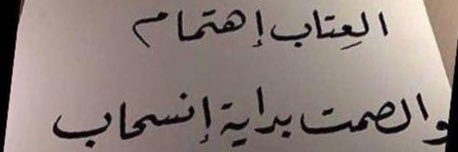 العِتاب إهتمام
والصمت بداية إنسحاب